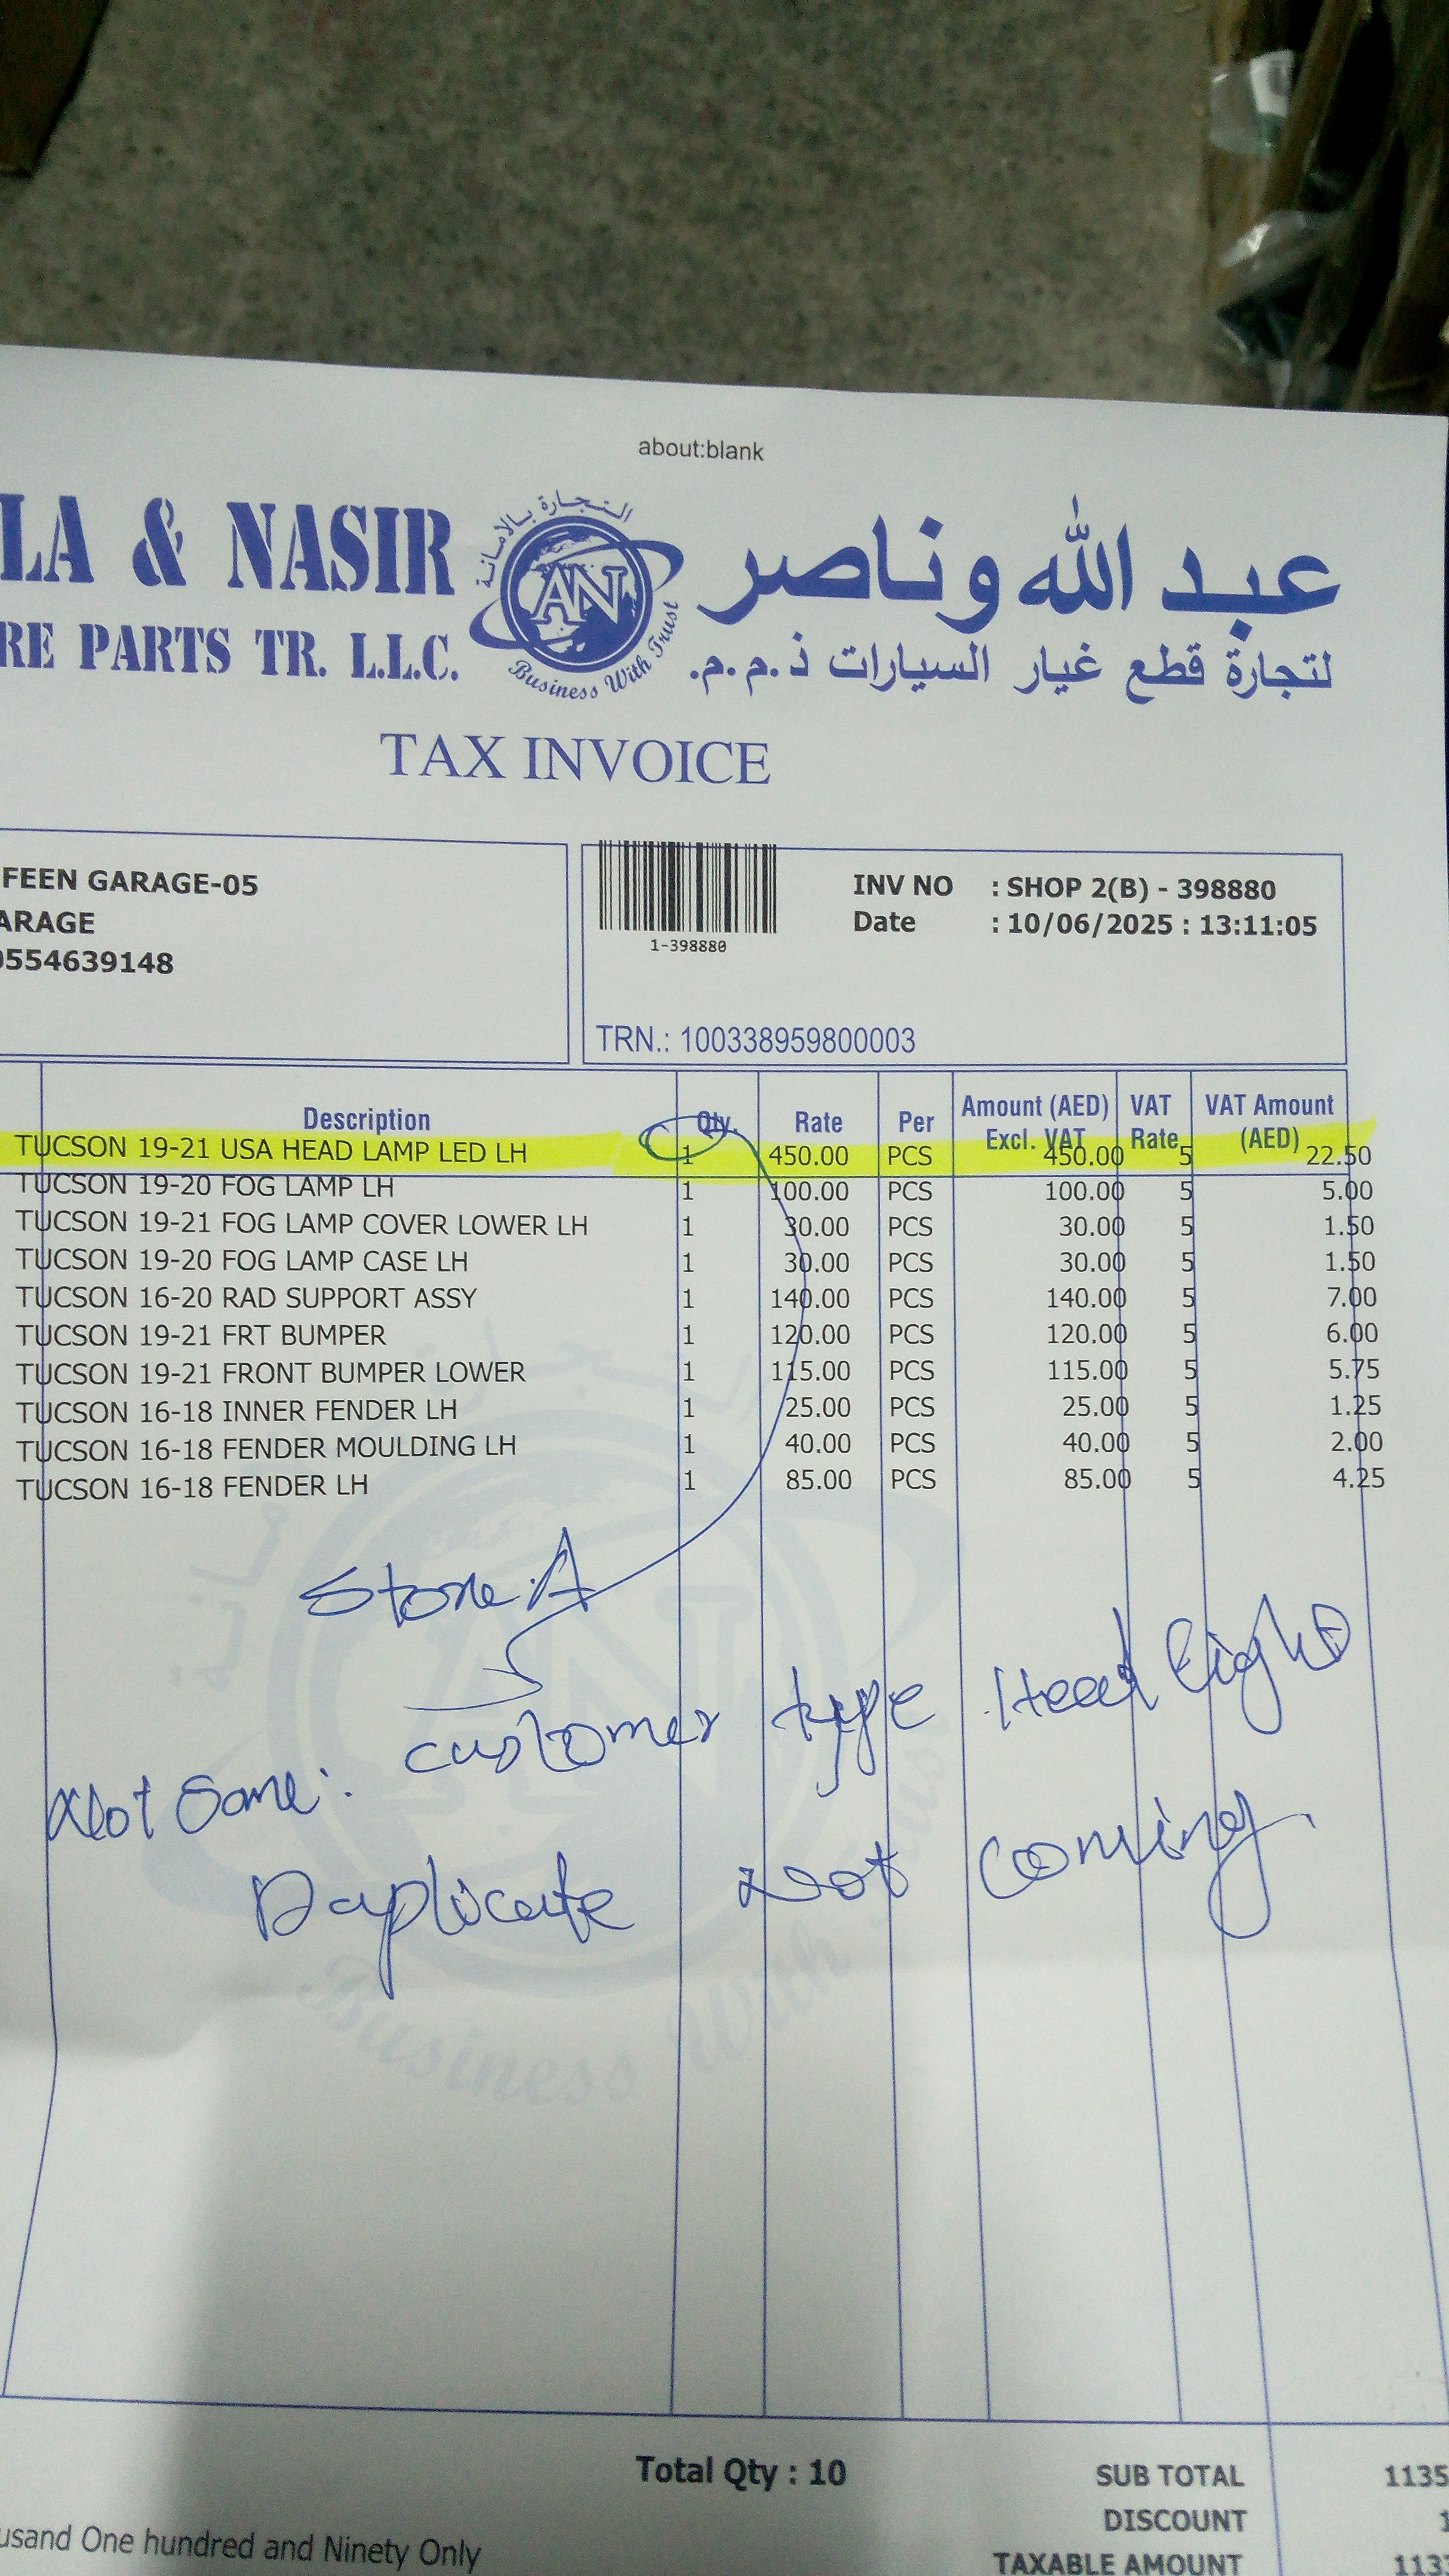 about:blank
LA & NASIR
عبد الله وناصر
RE PARTS TR. L.L.C.
لتجارة قطع غيار السيارات ذ.م.م.
التجارة بالأمانة
AN
Business With Trust
TAX INVOICE
FEEN GARAGE-05
ARAGE
0554639148
1-398880
INV NO : SHOP 2(B) - 398880
Date : 10/06/2025 : 13:11:05
TRN.: 100338959800003
Description Qty. Rate Per Amount (AED) Excl. VAT VAT Rate VAT Amount (AED)
TUCSON 19-21 USA HEAD LAMP LED LH 1 450.00 PCS 450.00 5 22.50
TUCSON 19-20 FOG LAMP LH 1 100.00 PCS 100.00 5 5.00
TUCSON 19-21 FOG LAMP COVER LOWER LH 1 30.00 PCS 30.00 5 1.50
TUCSON 19-20 FOG LAMP CASE LH 1 30.00 PCS 30.00 5 1.50
TUCSON 16-20 RAD SUPPORT ASSY 1 140.00 PCS 140.00 5 7.00
TUCSON 19-21 FRT BUMPER 1 120.00 PCS 120.00 5 6.00
TUCSON 19-21 FRONT BUMPER LOWER 1 115.00 PCS 115.00 5 5.75
TUCSON 16-18 INNER FENDER LH 1 25.00 PCS 25.00 5 1.25
TUCSON 16-18 FENDER MOULDING LH 1 40.00 PCS 40.00 5 2.00
TUCSON 16-18 FENDER LH 1 85.00 PCS 85.00 5 4.25
Store A
customer type Head light
Not Same.
Duplicate Not coming.
Business With
Total Qty : 10
SUB TOTAL 1135
DISCOUNT 1
TAXABLE AMOUNT 113
usand One hundred and Ninety Only